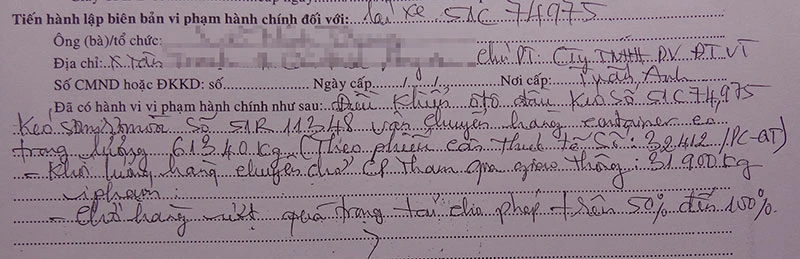 Tiến hành lập biên bản vi phạm hành chính đối với: Lái xe 51C 74975
Ông (bà)/tổ chức: Chủ PT: Cty TNHH DV ĐT VT
Địa chỉ: X. Tân
Số CMND hoặc ĐKKD: số Ngày cấp / / Nơi cấp: Tuấn Anh
Đã có hành vi vi phạm hành chính như sau: Điều khiển ôtô đầu kéo số 51C 74,975
Kéo sơmi rơmoóc số 51R 11348 vận chuyển hàng container có
trọng lượng 61340 Kg (Theo phiếu cân thuế tế số: 32412 /PC-QT)
- Khối lượng hàng chuyên chở CP Tham gia giao thông: 31.900 Kg
i phạm:
- Chở hàng vượt quá trọng tải cho phép trên 50% đến 100%.